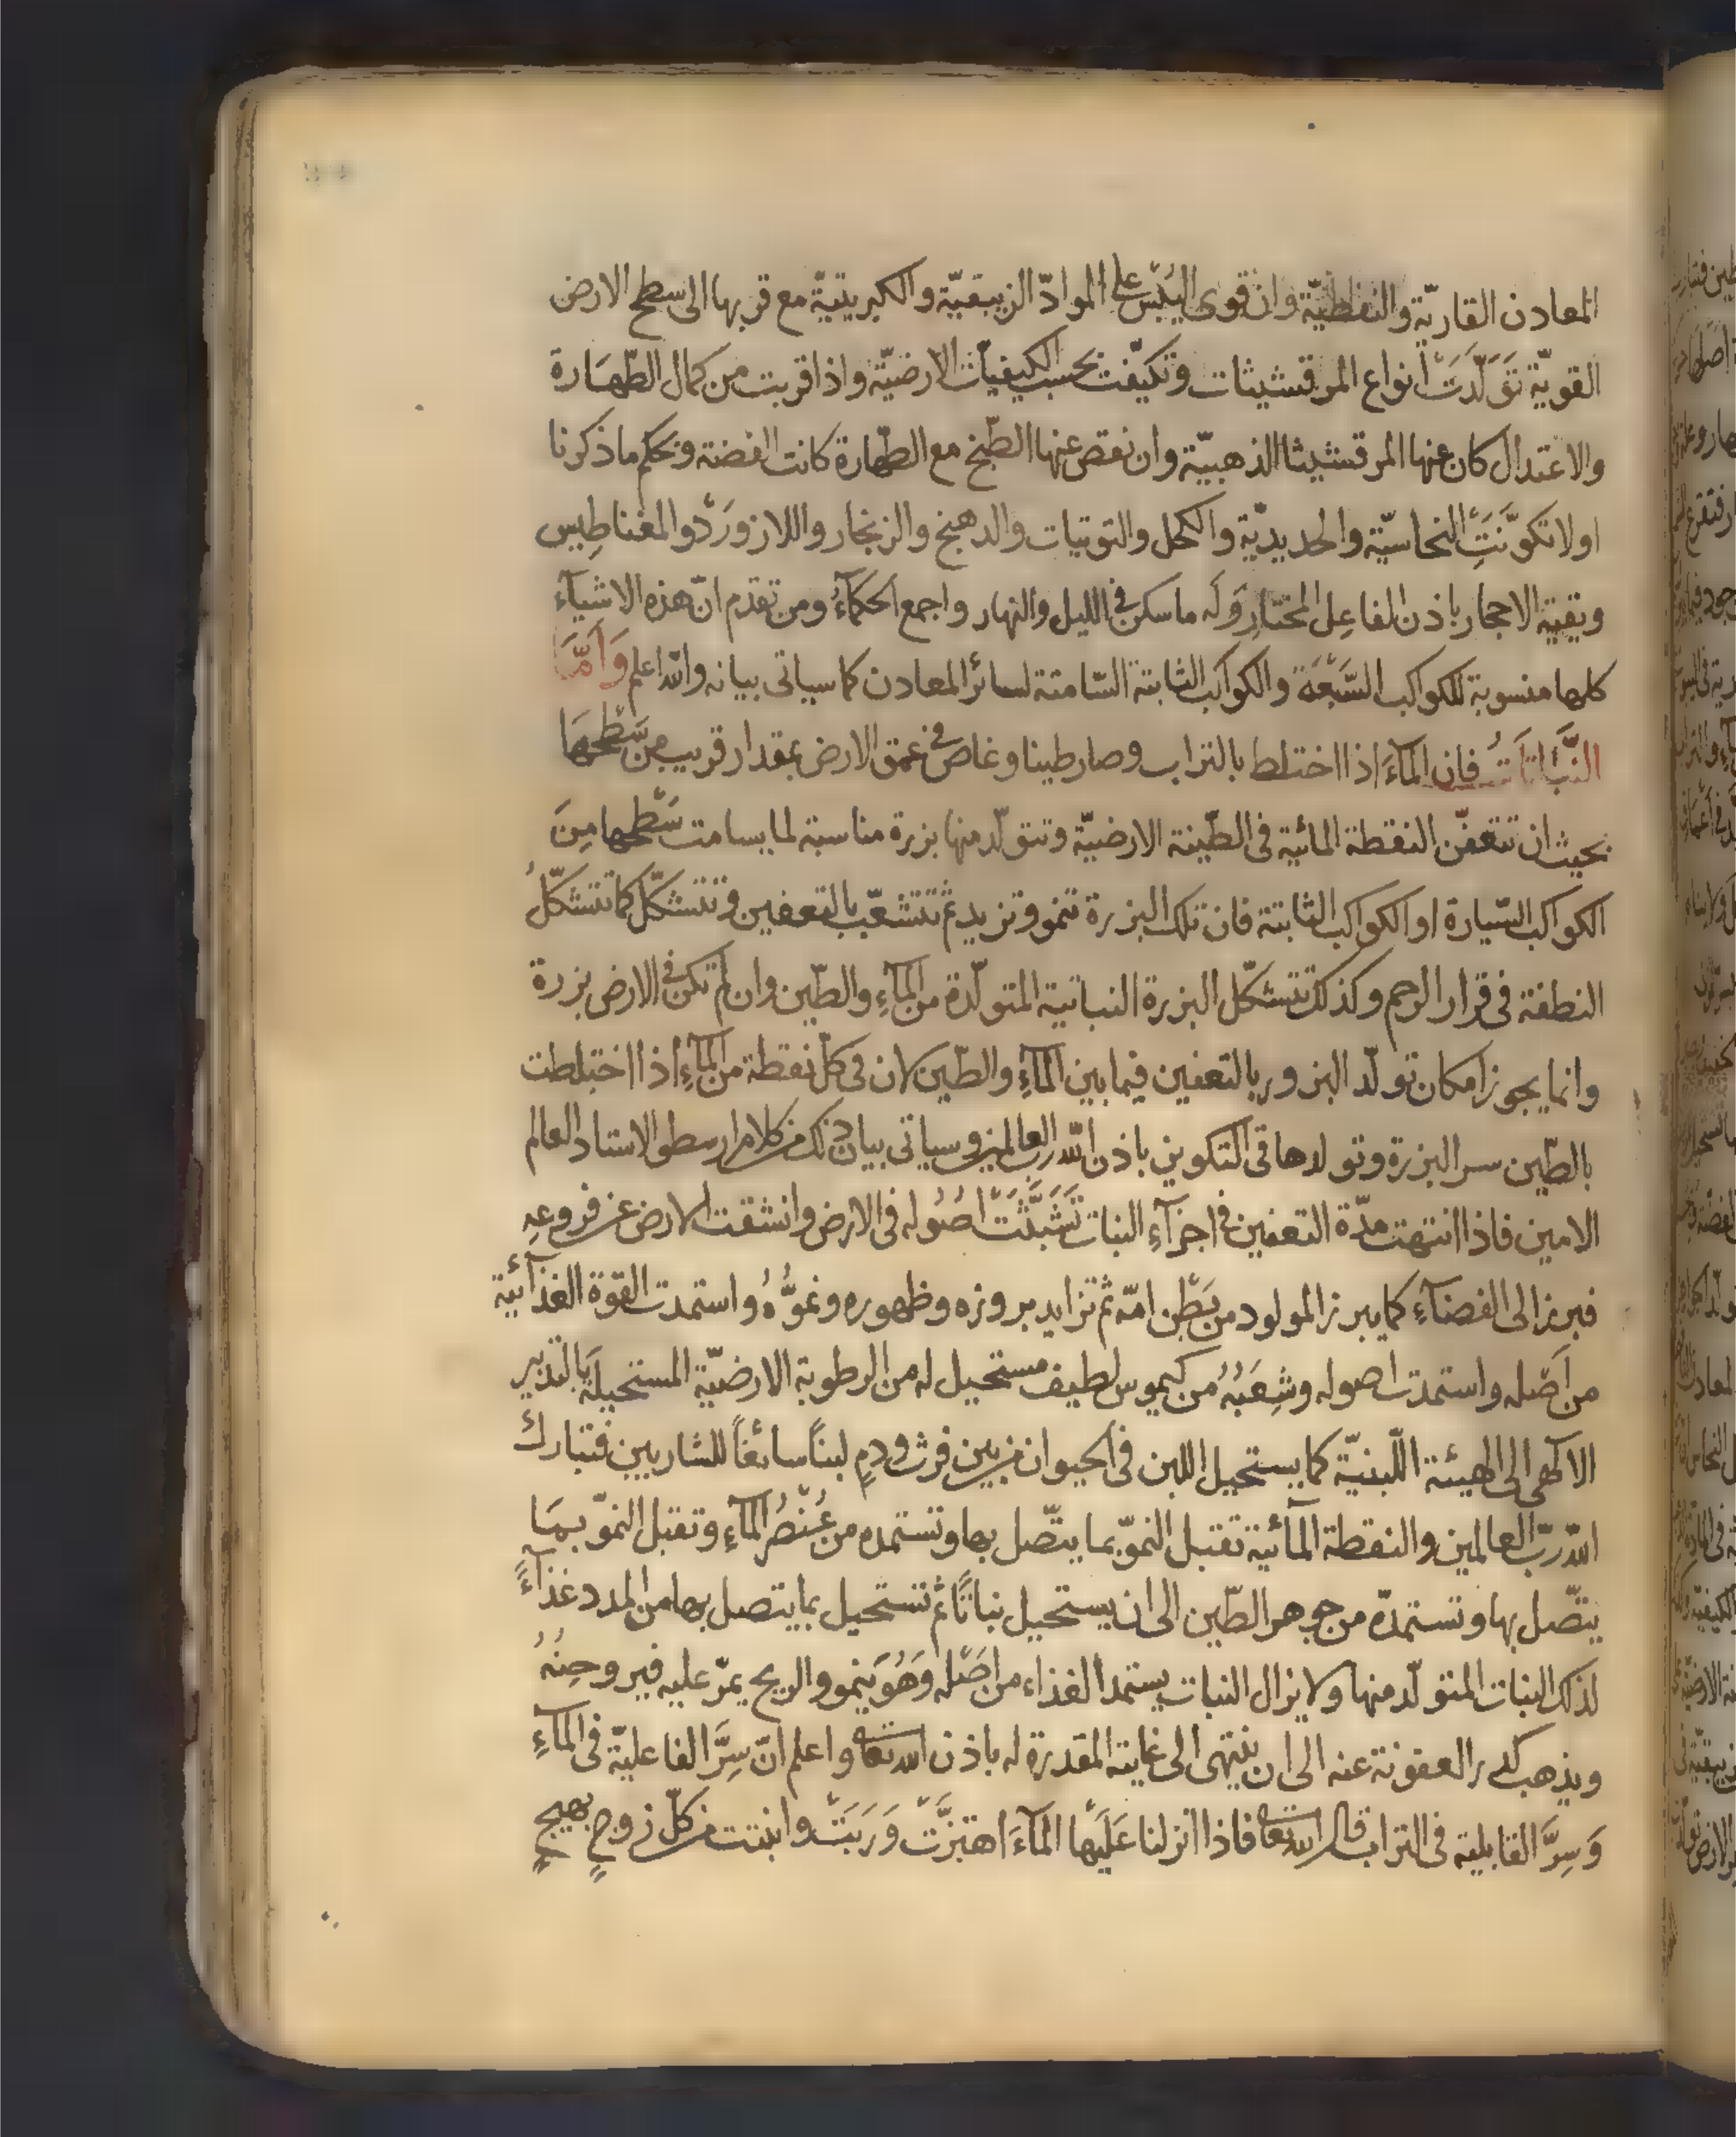 المعادن القاريّة والنفطيّة وان قوى اليُبْس على الموادّ الزيبقيّة والكبريتيّة مع قربها الى سطح الارض
القويّة تَوَلَّدَتْ انواع المرقشيثات وتكيّفت بحسب الكيفيّات الارضيّة واذا قربت من كمال الطّهَارة
والاعتدال كان عنها المرقشيثا الذهبيّة وان نقص عنها الطّبخ مع الطّهارة كانت الفضته وبحكم ما ذكرنا
اولا تكوّنَتِ النحاسيّة والحديديّة والكحل والتوتيات والدهنج والزنجار واللازوَرْد والمغناطِيس
وبقية الاحجار باذن الفاعِل المختارِ وَلَه ما سكن فى الليل والنهار واجمع الحكمآءُ ومن تقدّم انّ هذه الاشيآء
كلها منسوبة للكواكب السَّبْعَة والكواكب الثابتة السّامتة لسائر المعادن كما سياتى بيانه والله اعلم وَاَمَّا
النَّبَاتَاتُ فان المآءَ اذا اختلط بالتراب وصار طينا وغاص فى عمق الارض بمقدار قريب مِن سَطْحِهَا
بحيث ان تتعفّن النقطة المائية فى الطّينة الارضيّة وتتولّد منها بزرة مناسبة لما يسامت سَطْحها مِنَ
الكواكب السّيارة او الكواكب الثابتة فان تلك البزرة تنمو وتزيد ثم تتشعّب بالتعفين وتتشكّل كما تتشكّلُ
النطفة فى قرار الرحم وكذلك تتشكّل البزرة النباتية المتولّدة من المآءِ والطّين وان لم تكن فى الارض بزرة
وانما يجوز امكان تولّد البزور بالتعفين فيما بين المآءِ والطّين لان فى كلّ نقطة من المآءِ اذا اختلطت
بالطّين سر البزرة وتولدها فى التكوين باذن الله ربّ العالمين وسياتى بيان ذلك من كلام ارسطو الاستاد العالم
الامين فاذا انتهت مدّة التعفين فى اجزآءِ النبات تَشَبَّثَتْ اصُولُه فى الارض وانشقت الارض عن فروعِهِ
فبرز الى الفضآءِ كما يبرز المولود من بَطْن امّه ثم تزايد بروزه وظهوره ونموُّهُ واستمدت القوة الغذآئية
من اَصْله واستمدت اصوله وشِعَبُهُ من كيموس لطيف مستحيل له من الرطوبة الارضيّة المستحيلة بالتدبير
الالهى الى الهيئة اللّبنيّة كما يستحيل اللبن فى الحيوان من بين فرث ودمٍ لبناً سائغاً للشاربين فتبارك
الله ربّ العالمين والنقطة المآئية تقبل النموّ بما يتّصل بها وتستمده من عُنْصُر المآءِ وتقبل النموّ بهَا
يتّصل بها وتستمدّه من جوهر الطّين الى ان يستحيل نباتًا ثم تستحيل بما يتصل بها من المدد غذآءً
لذلك النبات المتولّد منها ولا يزال النبات يستمد الغذاء من اصَلْه وَهُوَ ينمو والريح يمرّ عليه فيروحِنُهُ
ويذهب كدر العفونة عنه الى ان ينتهى الى غايته المقدرة له باذن الله تعالى واعلم انّ سِرَّ الفاعليّة فى المآءِ
وَسِرَّ القابلية فى التراب قال الله تعالى فاذا انزلنا عَلَيْها المآءَ اهتزَّتْ وَرَبَتْ وانبتت من كلّ زوجٍ بهيجٍ